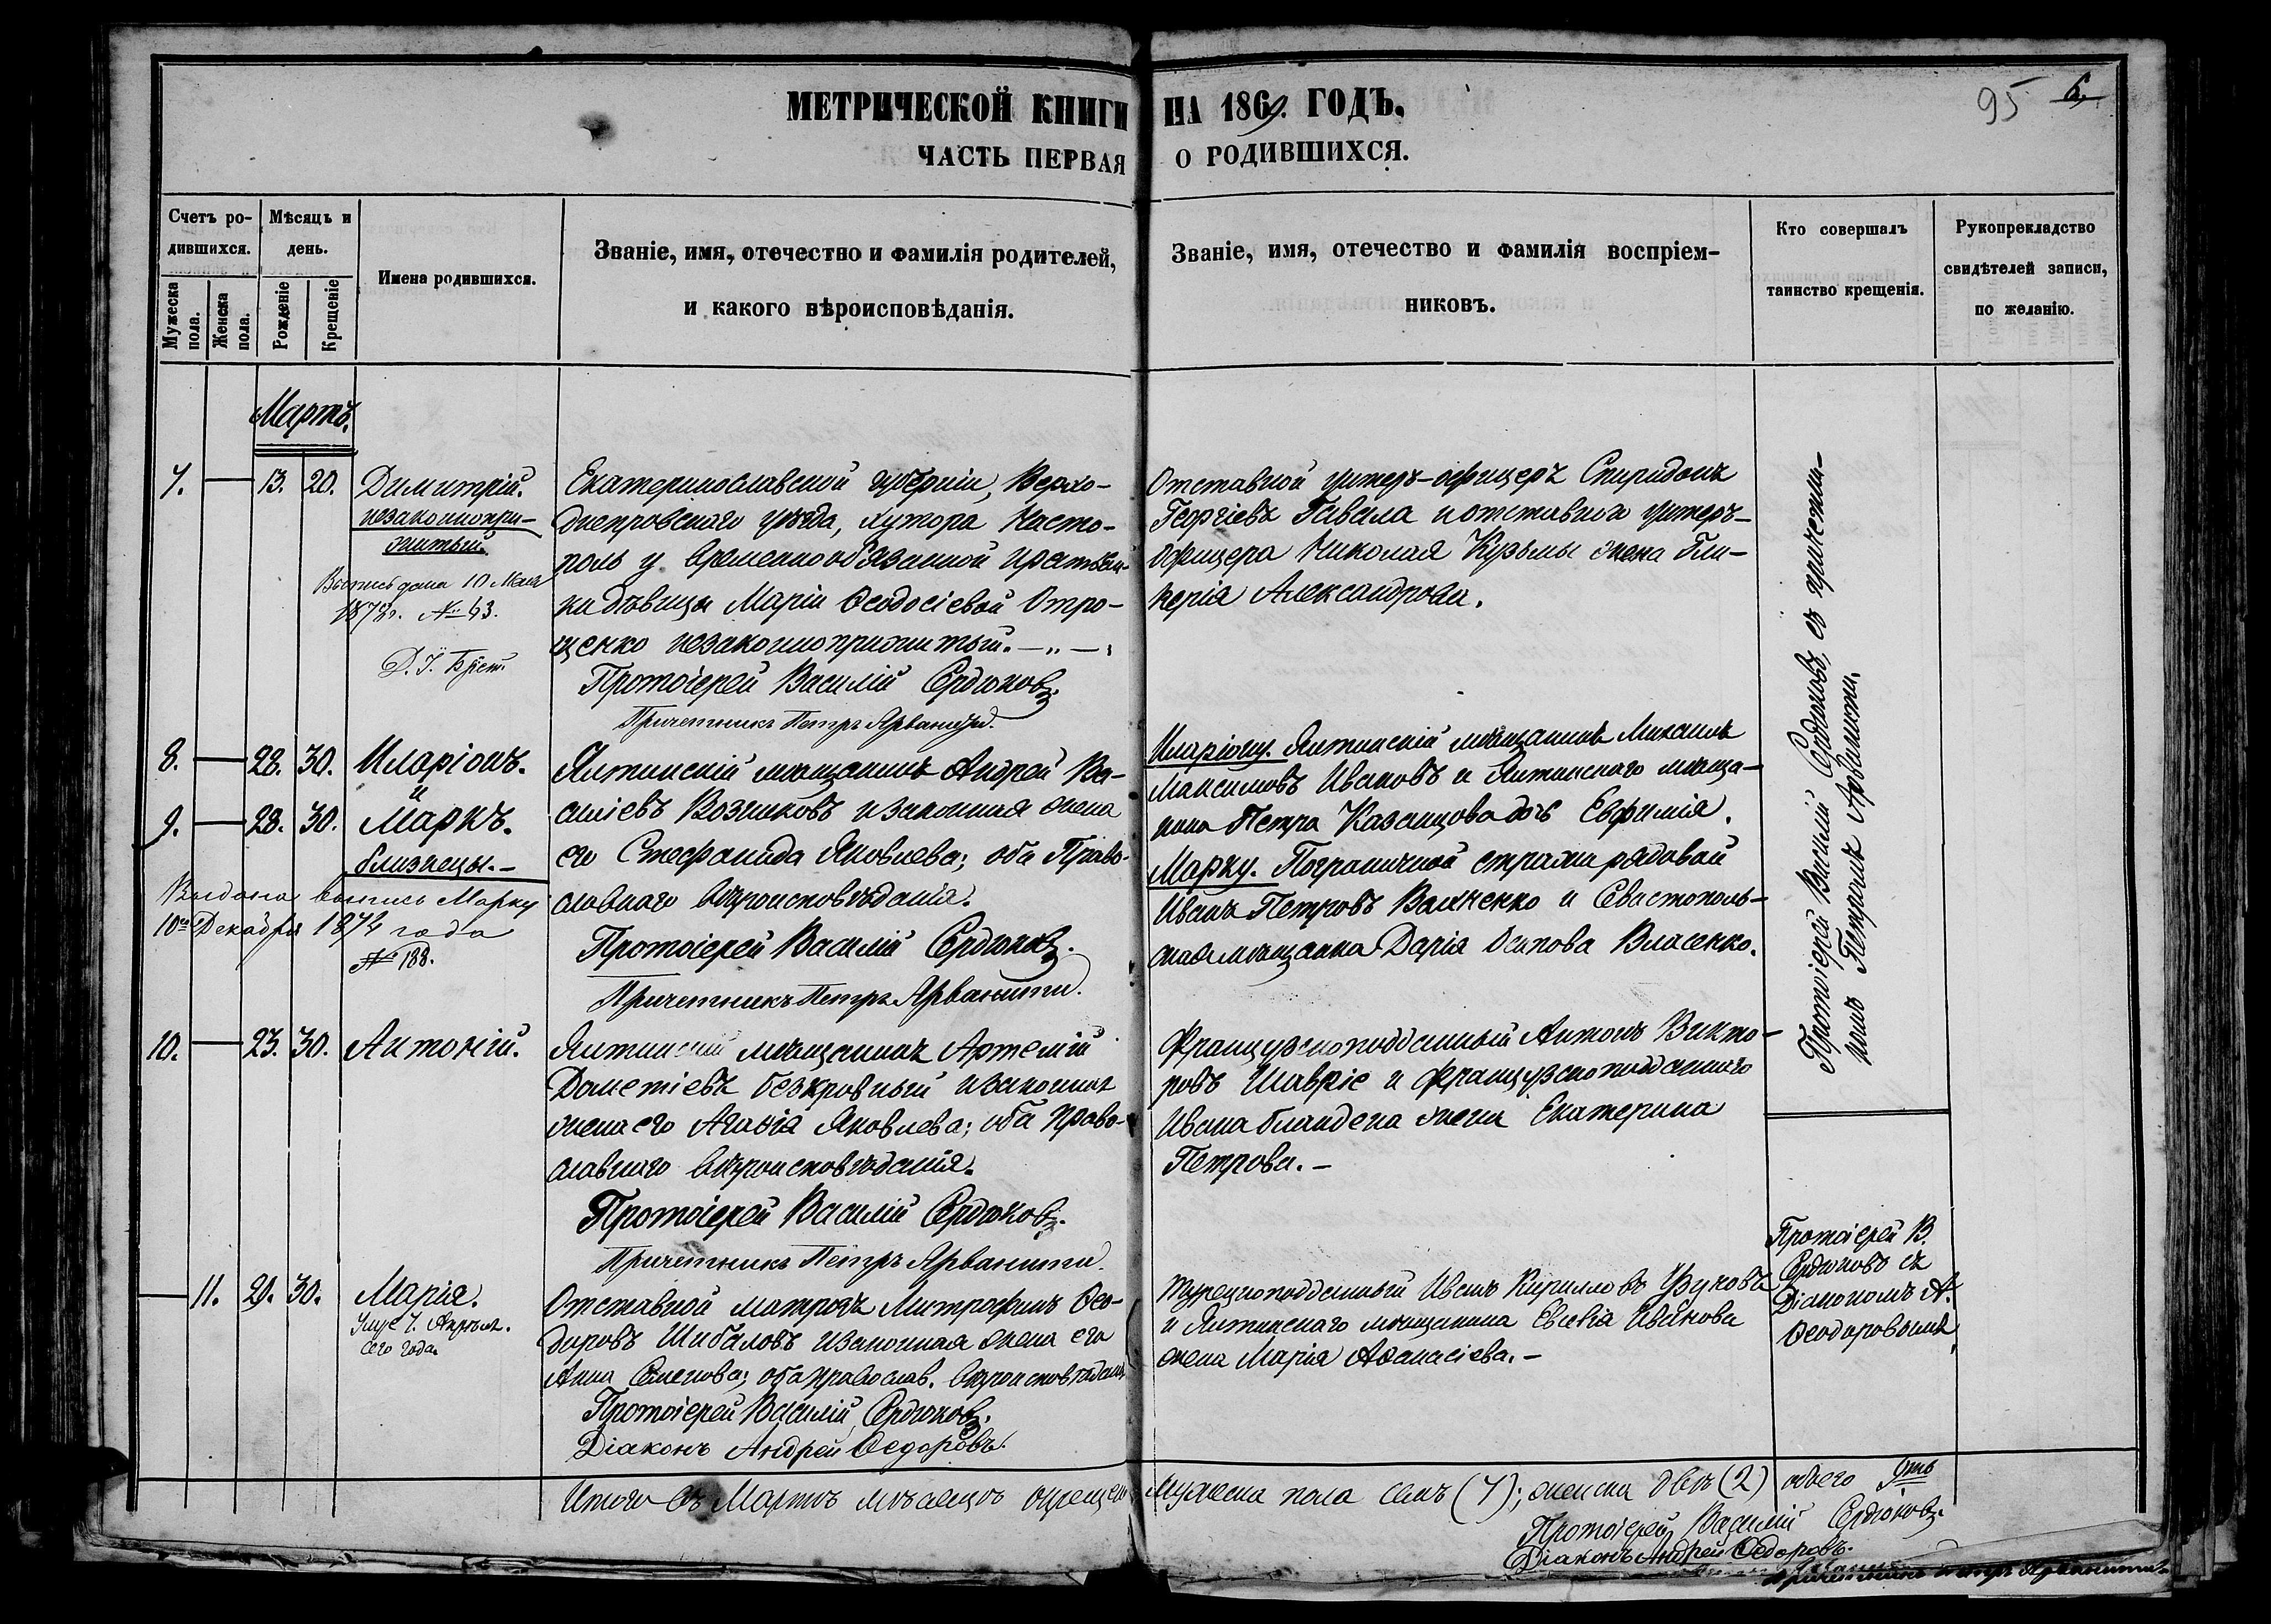 МЕТРИЧЕСКОЙ КНИГИ НА 1869. ГОДЪ.
95 6.
ЧАСТЬ ПЕРВАЯ О РОДИВШИХСЯ.
Счетъ ро-
дившихся.
Мужеска
пола.
Женска
пола.
Мѣсяцъ и
день.
Рожденіе
Крещеніе
Имена родившихся.
Званіе, имя, отечество и фамилія родителей,
и какого вѣроисповѣданія.
Званіе, имя, отечество и фамилія воспріем-
никовъ.
Кто совершалъ
таинство крещенія.
Рукоприкладство
свидѣтелей записи,
по желанію.
Мартъ.
7. — 13. 20. Димитрій.
незаконнопри-
житый.
Выпись дана 10 Мая
№ 43.
Екатеринославской губерніи, Верхо-
днепровскаго уѣзда, хутора Насто-
поль у временнообязанной крестьян-
ки дѣвицы Маріи Ѳеодосіевой Отро-
щенко незаконноприжитый.
Протоіерей Василій Сердюковъ.
Причетникъ Петръ Арванити.
Отставной унтеръ-офицеръ Спиридонъ
Георгіевъ Гавала и отставнаго унтеръ-
офицера Николая Кузьмы жена Гли-
керія Александрова.
8. — 28. 30. Иларіонъ.
и
9. — 28. 30. Маркъ.
близнецы.-
Выдана выпись Марку
10го Декабря 1874 года
№ 188.
Ялтинскій мѣщанинъ Андрей Ва-
силіевъ Возниковъ и законная жена
его Стефанида Яковлева; оба Право-
славнаго вѣроисповѣданія.
Протоіерей Василій Сердюковъ.
Причетникъ Петръ Арванити.
Иларіону. Ялтинскій мѣщанинъ Михаилъ
Максимовъ Ивановъ и Ялтинскаго мѣща-
нина Петра Казанцова дочь Евфимія.
Марку. Пограничной стражи рядовой
Иванъ Петровъ Вакченко и Севастополь-
ская мѣщанка Дарія Осипова Власенко.
10. — 23. 30. Антоній.
Ялтинскій мѣщанинъ Артемій
Дометіевъ Безкровный и законная
жена его Агаѳія Яковлева; оба Право-
славнаго вѣроисповѣданія.
Протоіерей Василій Сердюковъ.
Причетникъ Петръ Арванити.
Французскоподданный Антонъ Викто-
ровъ Шавріе и французскоподданнаго
Ивана Бландена жена Екатерина
Петрова.-
Протоіерей Василій Сердюковъ, съ причетни-
комъ Петромъ Арванити.
— 11. 29. 30. Марія.
Апрѣля.
сего года.
Отставной матросъ Митрофанъ Ѳео-
доровъ Шибаловъ и законная жена его
Анна Семенова; оба православ. вѣроисповѣданія
Протоіерей Василій Сердюковъ.
Діаконъ Андрей Ѳедоровъ.
Турецкоподданный Иванъ Кирилловъ Узуновъ
и Ялтинскаго мѣщанина Евсевія Иванова
жена Марія Аѳанасіева.-
Протоіерей В.
Сердюковъ съ
Діакономъ А.
Ѳеодоровымъ
Итого въ Мартѣ мѣсяцѣ крещено мужеска пола семь (7); женска двѣ (2) обоего 9ть
Протоіерей Василій Сердюковъ.
Діаконъ Андрей Ѳедоровъ.
Причетникъ Петръ Арванити.